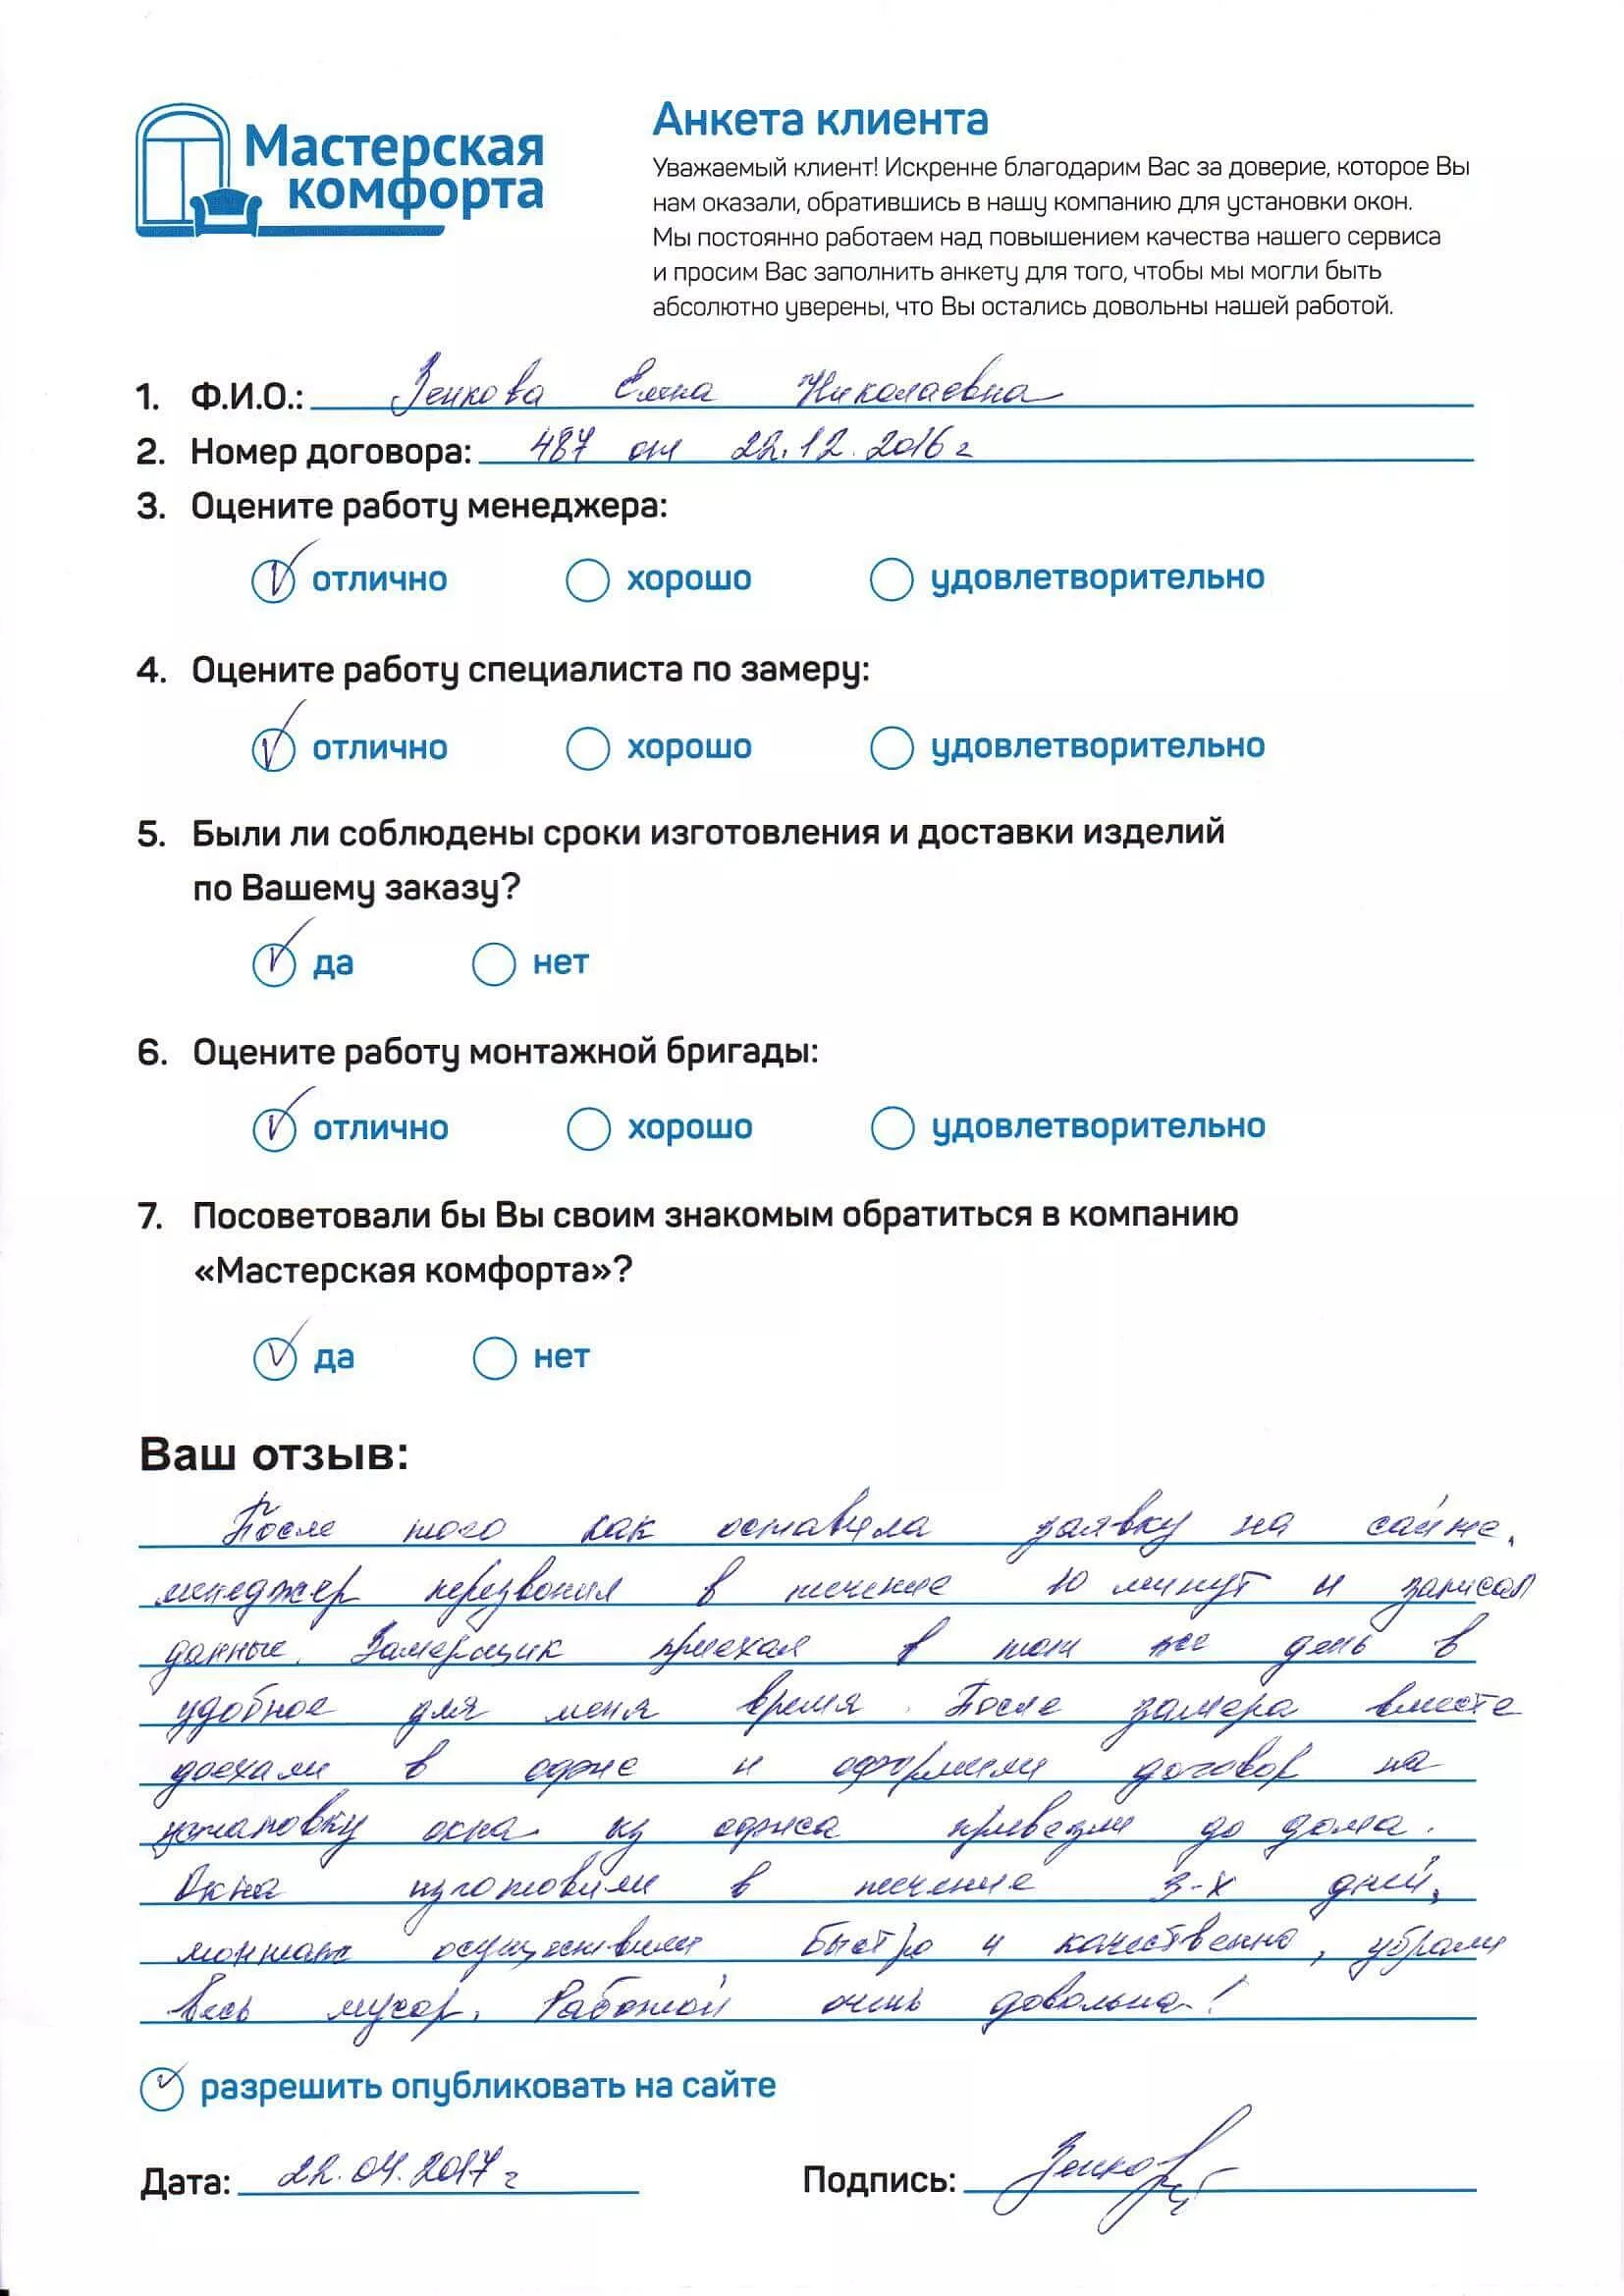 Мастерская
комфорта
Анкета клиента
Уважаемый клиент! Искренне благодарим Вас за доверие, которое Вы
нам оказали, обратившись в нашу компанию для установки окон.
Мы постоянно работаем над повышением качества нашего сервиса
и просим Вас заполнить анкету для того, чтобы мы могли быть
абсолютно уверены, что Вы остались довольны нашей работой.
1. Ф.И.О.: Зенкова Елена Николаевна
2. Номер договора: 487 от 22.12.2016 г
3. Оцените работу менеджера:
отлично хорошо удовлетворительно
4. Оцените работу специалиста по замеру:
отлично хорошо удовлетворительно
5. Были ли соблюдены сроки изготовления и доставки изделий
по Вашему заказу?
да нет
6. Оцените работу монтажной бригады:
отлично хорошо удовлетворительно
7. Посоветовали бы Вы своим знакомым обратиться в компанию
«Мастерская комфорта»?
да нет
Ваш отзыв:
После того как оставила заявку на сайте,
менеджер перезвонил в течение 10 минут и записал
данные. Замерщик приехал в тот же день в
удобное для меня время. После замера вместе
доехали в офис и оформили договор на
установку окна из офиса привезли до дома.
Окна изготовили в течение 3-х дней,
монтаж осуществили быстро и качественно, убрали
весь мусор. Работой очень довольна!
разрешить опубликовать на сайте
Дата: 22.04.2017 г Подпись: